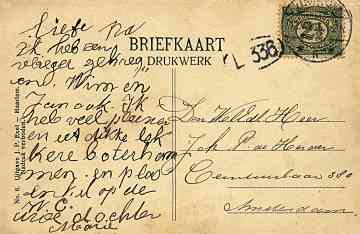 Liefe Pa
Ik heb een
vlieger gekreg
en. Wim en
Jan ook. Ik
heb veel
en eet dikke lek
kere boterham
men. en plas
en kil op de
W.C.
uwe dochter
Marie
BRIEFKAART
DRUKWERK
L 336
2½
No. 6. Uitgave J. P. Exel — Haarlem.
Nadruk verboden.
Den WelEd. Heer
Joh. P. de
Ceintuurbaan 380
Amsterdam